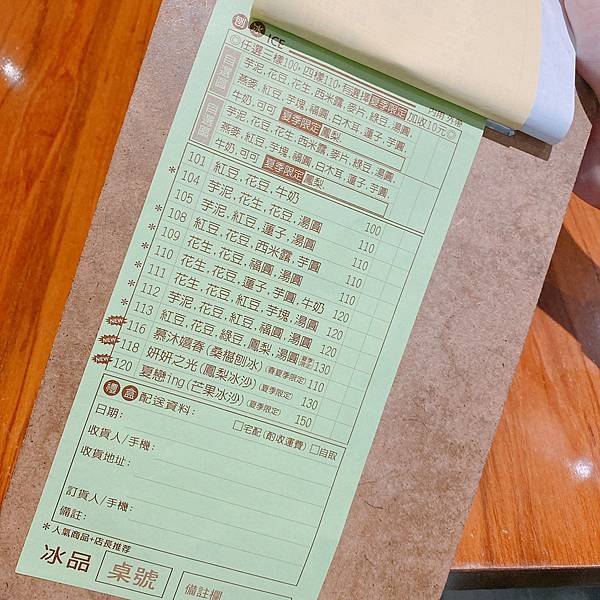 刨 冰 ICE
◎任選三樣100，四樣110，有選擇夏季限定 加收10元◎
內用 外帶
自選區
芋泥，花豆，花生，西米露，麥片，綠豆，湯圓，
燕麥，紅豆，芋塊，福圓，白木耳，蓮子，芋圓，
牛奶，可可 夏季限定 鳳梨
自選區
芋泥，花豆，花生，西米露，麥片，綠豆，湯圓，
燕麥，紅豆，芋塊，福圓，白木耳，蓮子，芋圓，
牛奶，可可 夏季限定 鳳梨
101 紅豆，花豆，牛奶 100
* 104 芋泥，花生，花豆，湯圓 110
105 芋泥，紅豆，蓮子，湯圓 110
* 108 紅豆，花豆，西米露，芋圓 110
* 109 花生，花豆，福圓，湯圓 110
* 110 花生，花豆，蓮子，芋圓，牛奶 120
* 111 花生，花豆，紅豆，芋塊，湯圓 120
* 112 芋泥，花豆，紅豆，福圓，湯圓 120
113 紅豆，花豆，綠豆，鳳梨，湯圓 夏季限定 130
NEW 116 慕沐嬉春(桑椹刨冰) (春夏季限定) 110
118 妍妍之光(鳳梨冰沙) (夏季限定) 130
NEW 120 夏戀ing(芒果冰沙) (夏季限定) 150
禮 盒 配送資料：
日期： □宅配(酌收運費) □自取
收貨人/手機：
收貨地址：
訂貨人/手機：
備註：
*人氣商品+店長推荐
冰品 桌號 備註欄